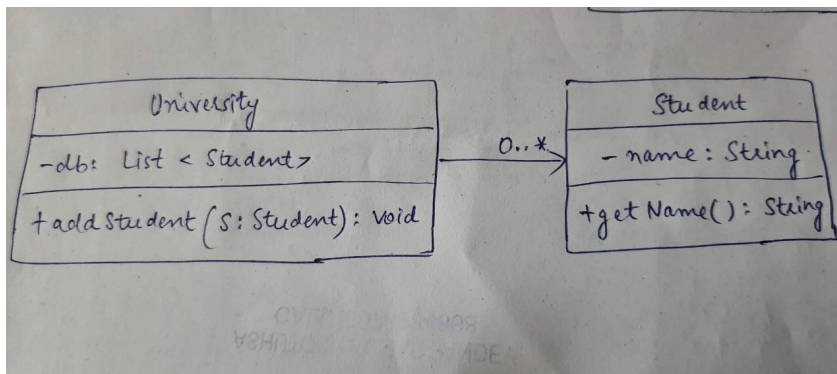 University
-db: List < Student>
+ addStudent (S: Student): void
0..*
Student
- name: String
+getName(): String